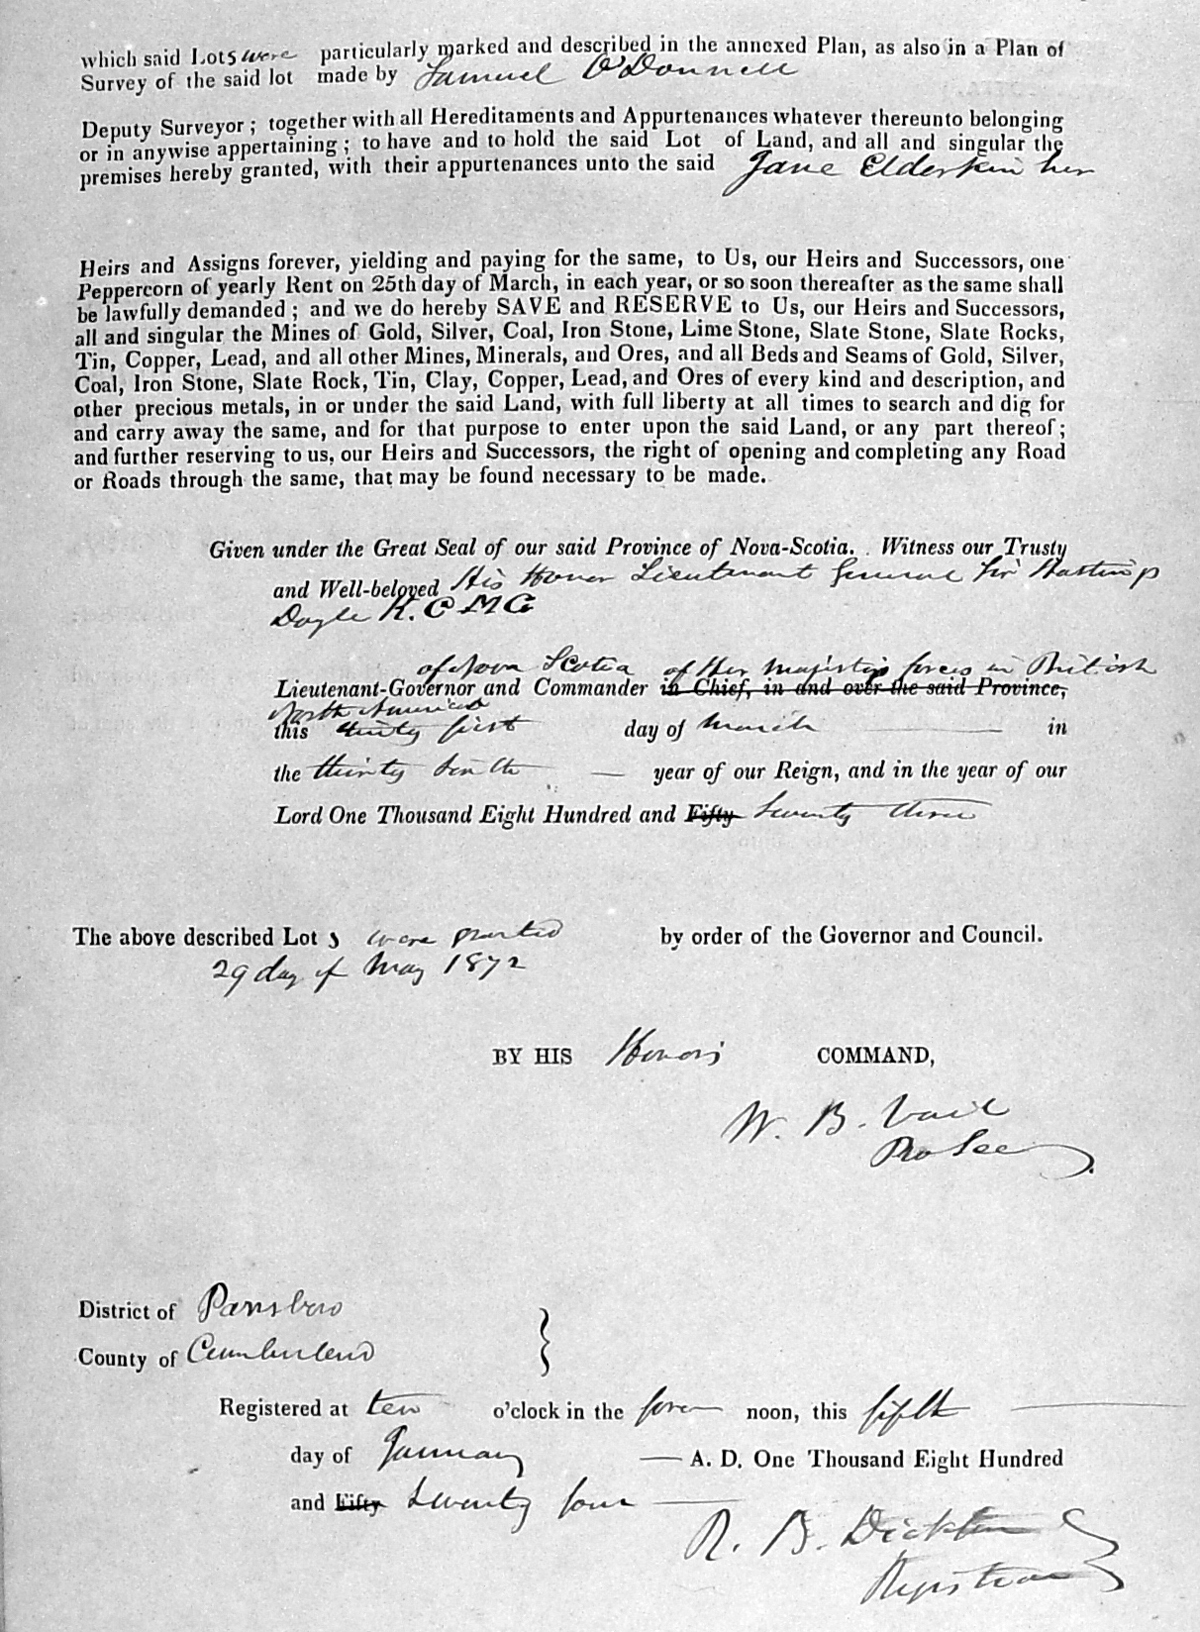 which said Lots were particularly marked and described in the annexed Plan, as also in a Plan of
Survey of the said lot made by Samuel O'Donnell
Deputy Surveyor; together with all Hereditaments and Appurtenances whatever thereunto belonging
or in anywise appertaining; to have and to hold the said Lot of Land, and all and singular the
premises hereby granted, with their appurtenances unto the said Jane Elderkin her
Heirs and Assigns forever, yielding and paying for the same, to Us, our Heirs and Successors, one
Peppercorn of yearly Rent on 25th day of March, in each year, or so soon thereafter as the same shall
be lawfully demanded; and we do hereby SAVE and RESERVE to Us, our Heirs and Successors,
all and singular the Mines of Gold, Silver, Coal, Iron Stone, Lime Stone, Slate Stone, Slate Rocks,
Tin, Copper, Lead, and all other Mines, Minerals, and Ores, and all Beds and Seams of Gold, Silver,
Coal, Iron Stone, Slate Rock, Tin, Clay, Copper, Lead, and Ores of every kind and description, and
other precious metals, in or under the said Land, with full liberty at all times to search and dig for
and carry away the same, and for that purpose to enter upon the said Land, or any part thereof;
and further reserving to us, our Heirs and Successors, the right of opening and completing any Road
or Roads through the same, that may be found necessary to be made.
Given under the Great Seal of our said Province of Nova-Scotia. Witness our Trusty
and Well-beloved His Honor Lieutenant General Sir Hastings
Doyle K.C.M.G
of Nova Scotia of Her Majestys forces in British
Lieutenant-Governor and Commander in Chief, in and over the said Province,
North America
this thirty first day of March in
the thirty sixth year of our Reign, and in the year of our
Lord One Thousand Eight Hundred and Fifty Seventy three
The above described Lots were granted by order of the Governor and Council.
29 day of May 1872
BY HIS Honors COMMAND,
W. B. Vail
Pro Sec
District of Parrsboro
County of Cumberland
Registered at ten o'clock in the fore noon, this fifth
day of January A. D. One Thousand Eight Hundred
and Fifty Seventy four
R. B. Dickson
Registrar